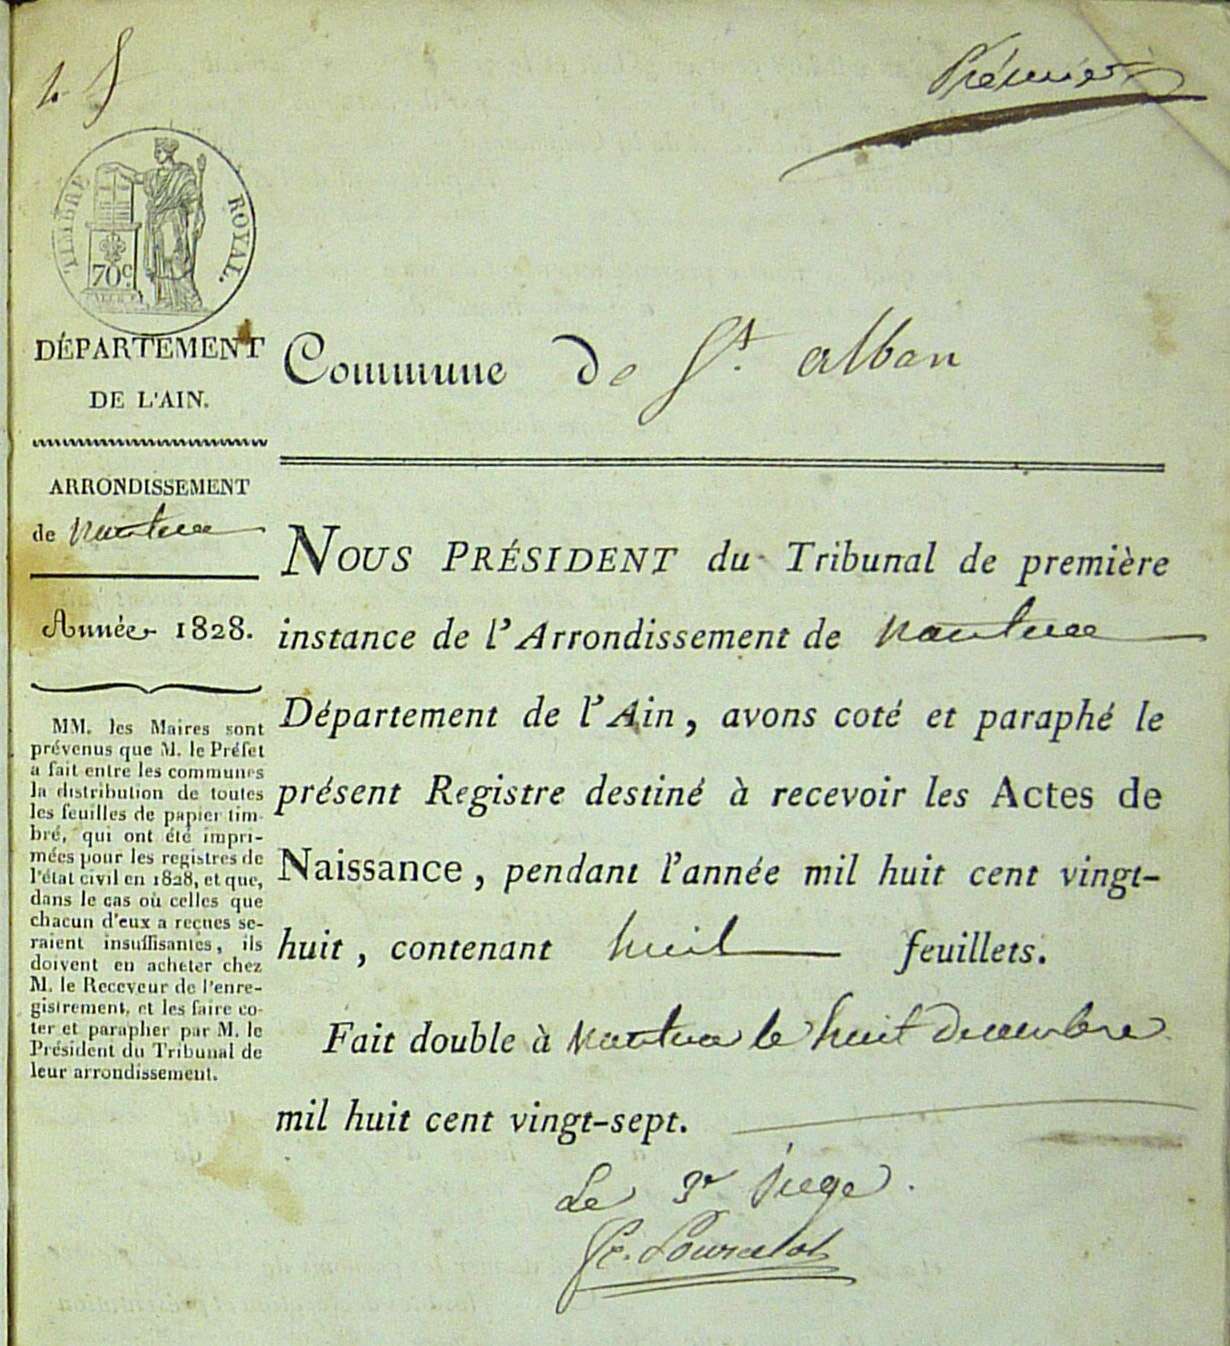 Prémier
TIMBRE ROYAL.
70c.
DÉPARTEMENT
DE L'AIN.
Commune de St. alban
ARRONDISSEMENT
de Nantua
Année 1828.
MM. les Maires sont
prévenus que M. le Préfet
a fait entre les communes
la distribution de toutes
les feuilles de papier tim-
bré, qui ont été impri-
mées pour les registres de
l'état civil en 1828, et que,
dans le cas où celles que
chacun d'eux a reçues se-
raient insuffisantes, ils
doivent en acheter chez
M. le Receveur de l'enre-
gistrement, et les faire co-
ter et parapher par M. le
Président du Tribunal de
leur arrondissement.
NOUS PRÉSIDENT du Tribunal de première
instance de l'Arrondissement de Nantua
Département de l'Ain, avons coté et paraphé le
présent Registre destiné à recevoir les Actes de
Naissance, pendant l'année mil huit cent vingt-
huit, contenant huit feuillets.
Fait double à Nantua le huit decembre
mil huit cent vingt-sept.
Le Juge.